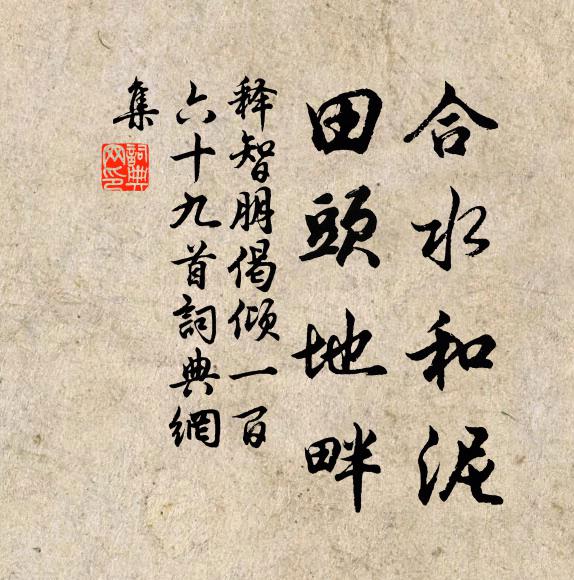 合水和泥
田頭地畔
释智朋偈倾一百
六十九首詞典網
集
詞典網印